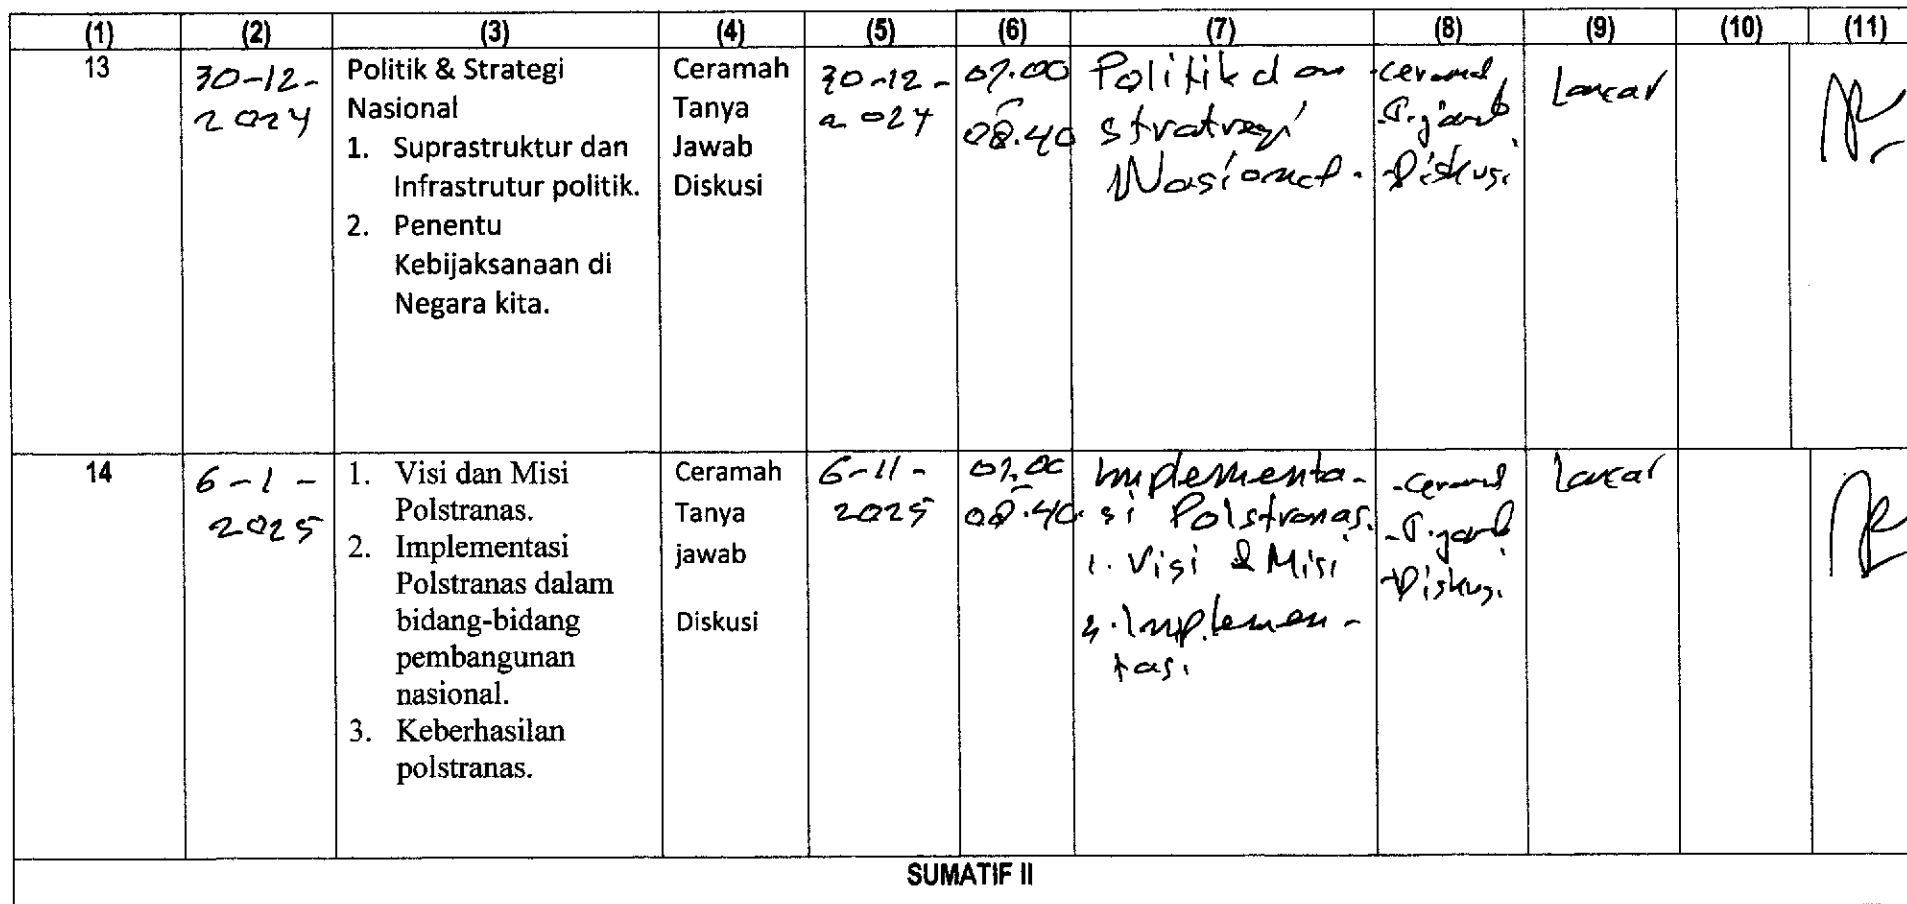 (1) (2) (3) (4) (5) (6) (7) (8) (9) (10) (11)
13
30-12-
2024
Politik & Strategi
Nasional
1. Suprastruktur dan
Infrastrutur politik.
2. Penentu
Kebijaksanaan di
Negara kita.
Ceramah
Tanya
Jawab
Diskusi
30-12-
2024
07.00
-
08.40
Politik dan
strategi
Nasional.
-Ceramah
-T.jawab
-Diskusi
Lancar
14
6-1-
2025
1. Visi dan Misi
Polstranas.
2. Implementasi
Polstranas dalam
bidang-bidang
pembangunan
nasional.
3. Keberhasilan
polstranas.
Ceramah
Tanya
jawab
Diskusi
6-11-
2025
07.00
-
08.40
Implementa-
si Polstranas.
1. Visi & Misi
2. Implemen-
tasi
-Ceramah
-T.jawab
-Diskusi
Lancar
SUMATIF II